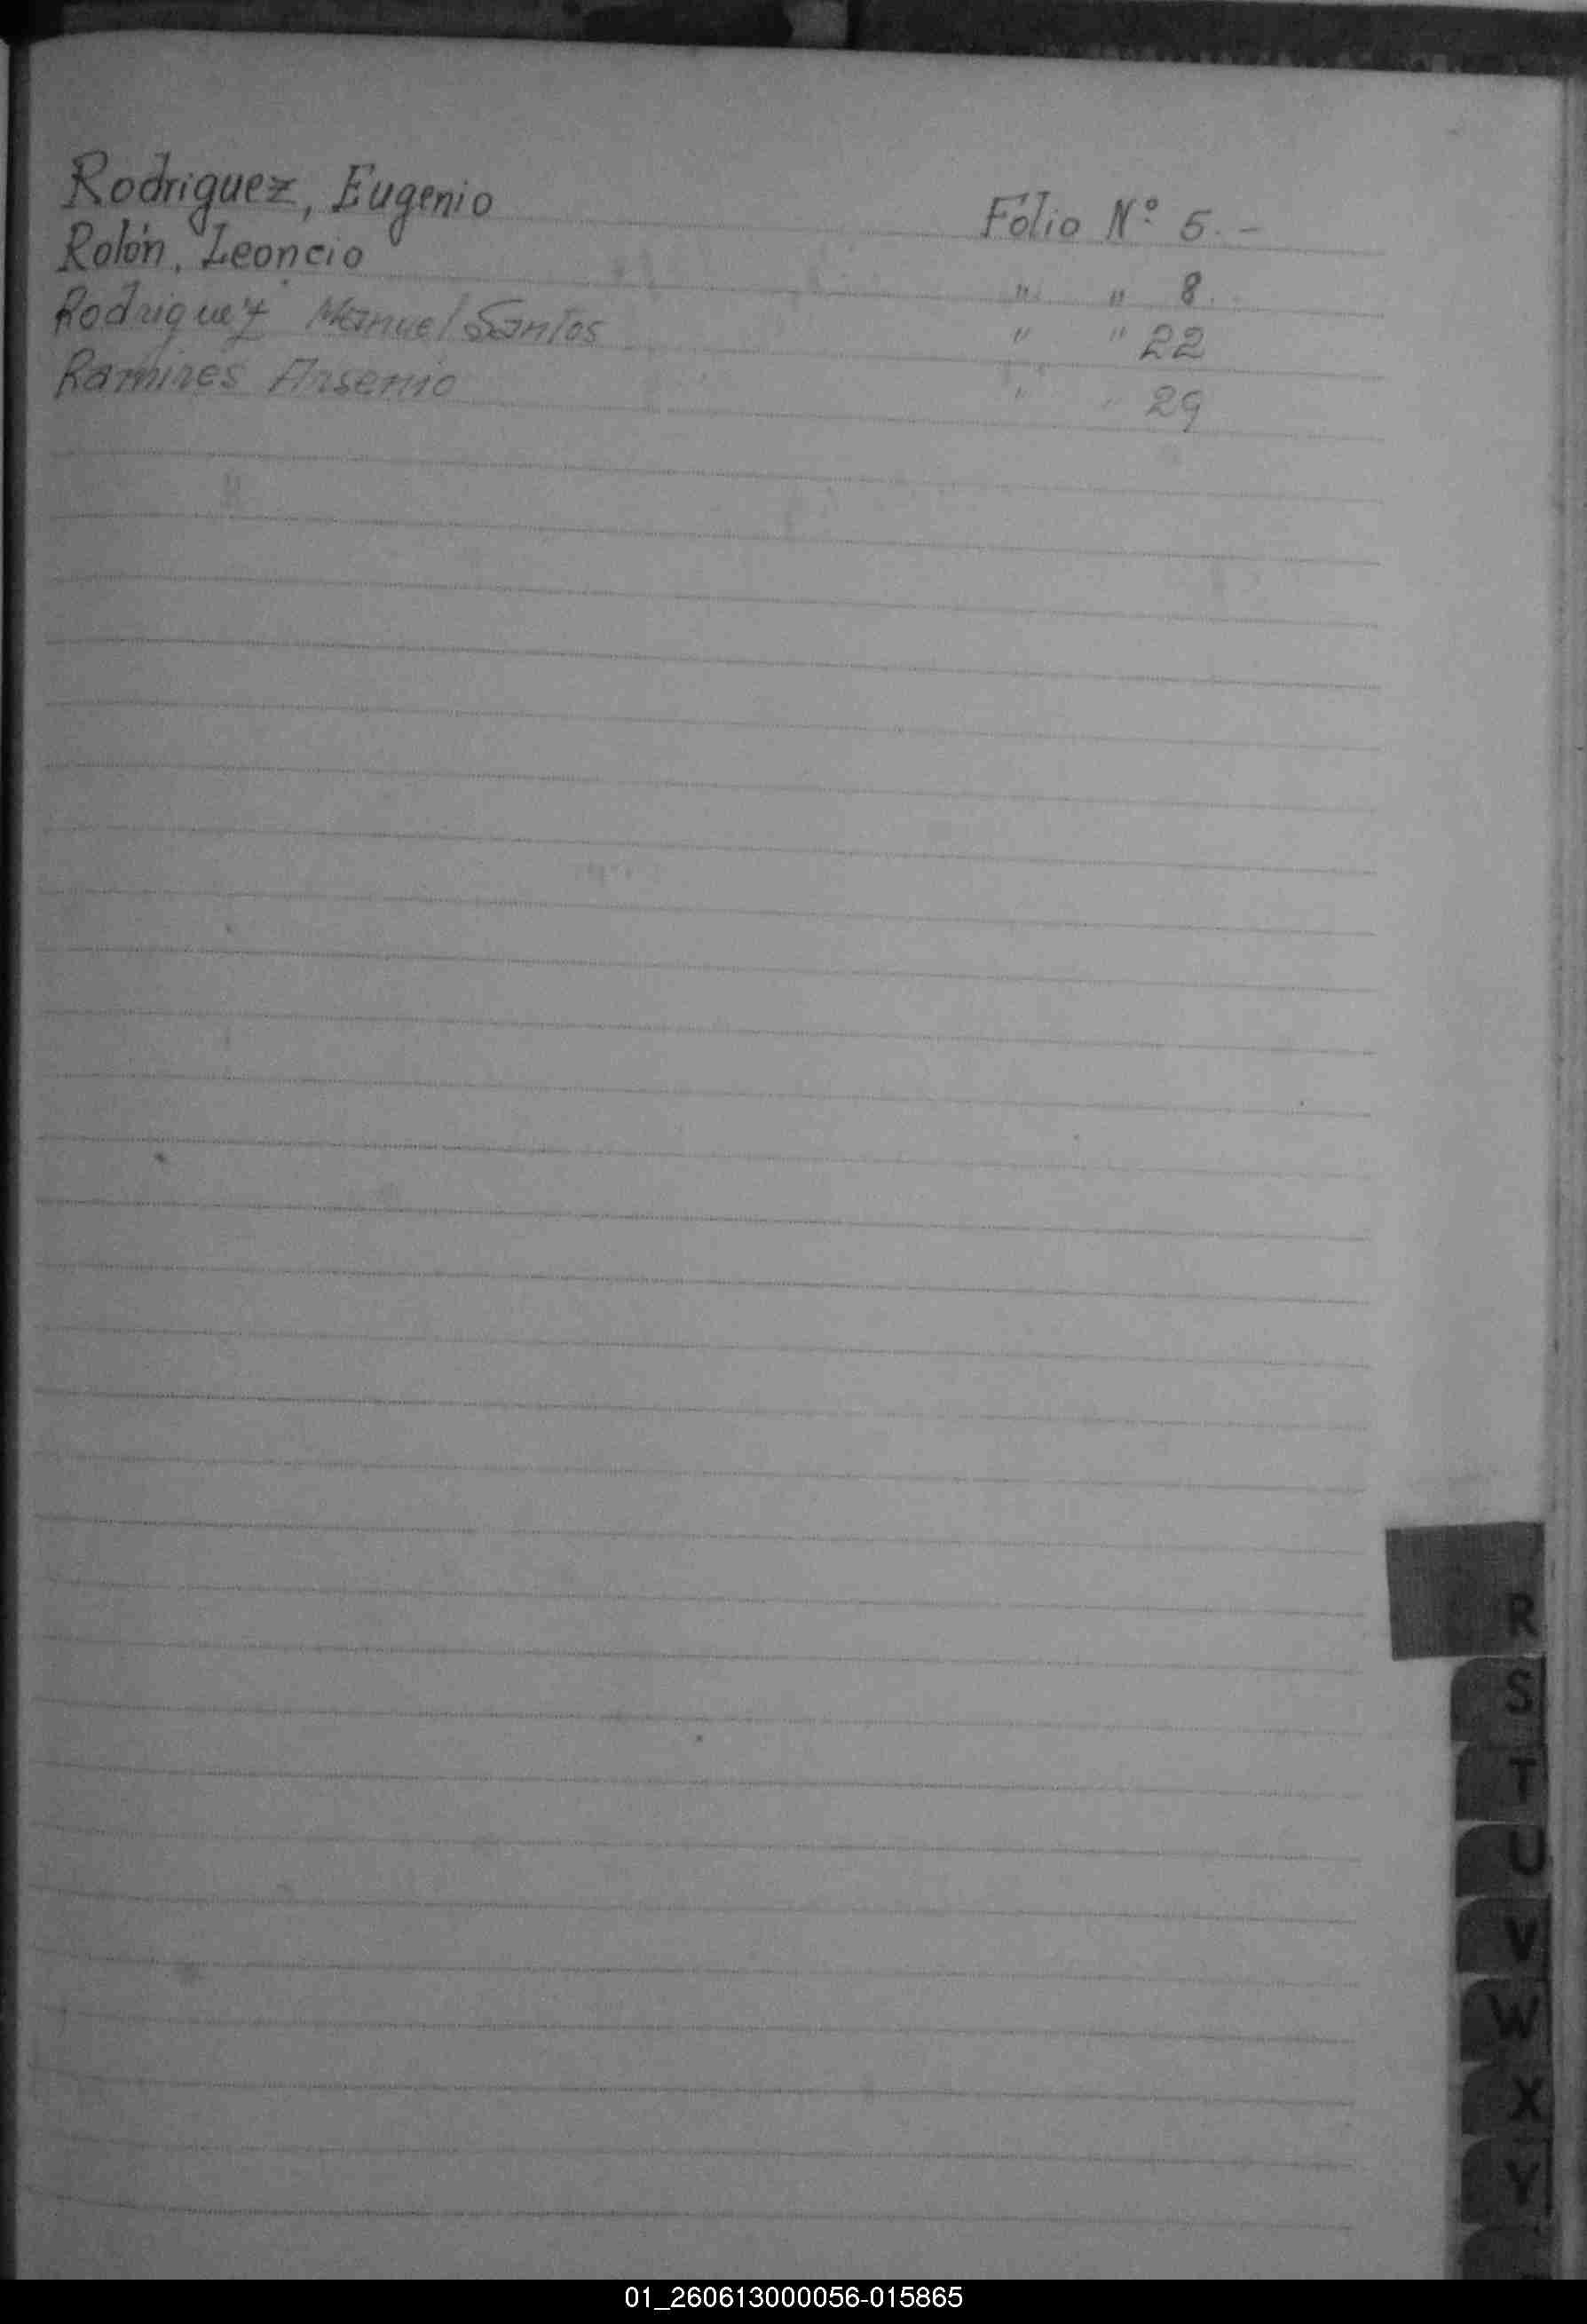 Rodriguez, Eugenio Fólio Nº 5.-
Rolón, Leoncio " " 8.
Rodriguez Manuel Santos " " 22
Ramires Arsenio " " 29
R
S
T
U
V
W
X
Y
01_260613000056-015865